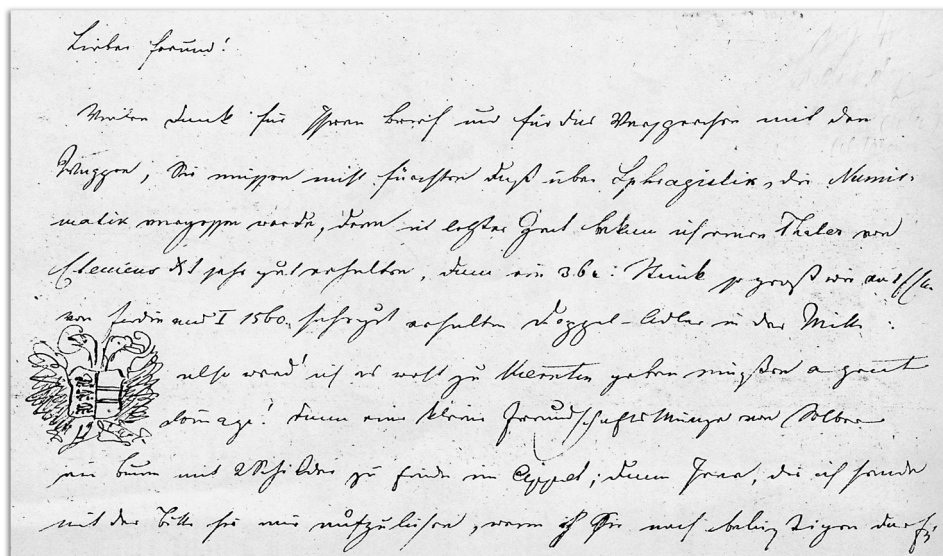 Lieber Freund!
Vielen Dank für Ihren Brief und für das Versprechen mit den
Wappen, Sie müssen nicht fürchten daß über Sphragistik, die Numis-
matik vergessen werde, denn in letzter Zeit bekam ich einen Thaler von
Clemens XI sehr gut erhalten, dann ein 36 Stück so groß wie
von Ferdinand I 1560, sehr gut erhalten Doppel-Adler in der Mitte.
also werd' ich es wohl zu geben müßen a great
domage! dann eine kleine Freundschafts Münze von Silber
ein Baum mit 2 Schilder zu finden im Appel; dann Jene, die ich sende
mit der Bitte sie mir aufzulösen, wenn ich Sie noch belästigen darf;